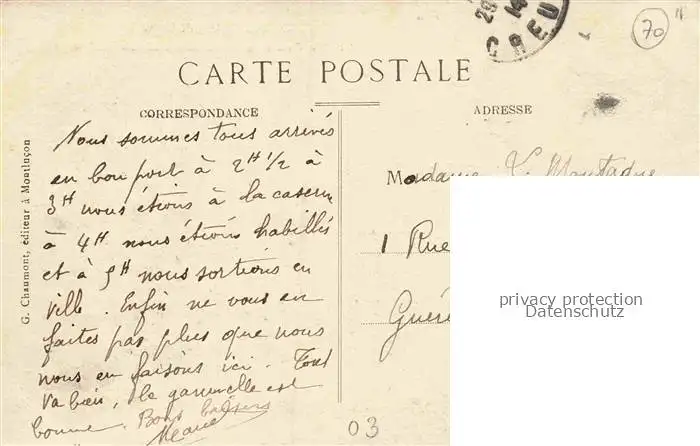 29
14
CREU
70
CARTE POSTALE
CORRESPONDANCE
ADRESSE
G. Chaumont, éditeur à Montluçon
Nous sommes tous arrivés
en bon port à 2H 1/2 à
3H nous étions à la casern
à 4H nous étions habillés
et à 5H nous sortions en
ville. Enfin ne vous en
faites pas plus que nous
nous en faisons ici. Tout
va bien, la gamelle est
bonne. Bons baisers
Madame
1 Rue
Guére
privacy protection
Datenschutz
03